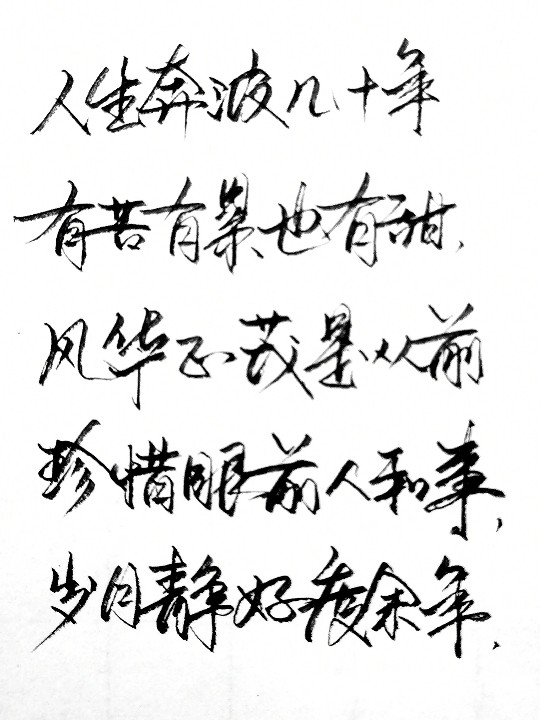 人生奔波几十年
有苦有累也有甜，
风华正茂是从前
珍惜眼前人和事，
岁月静好度余年，